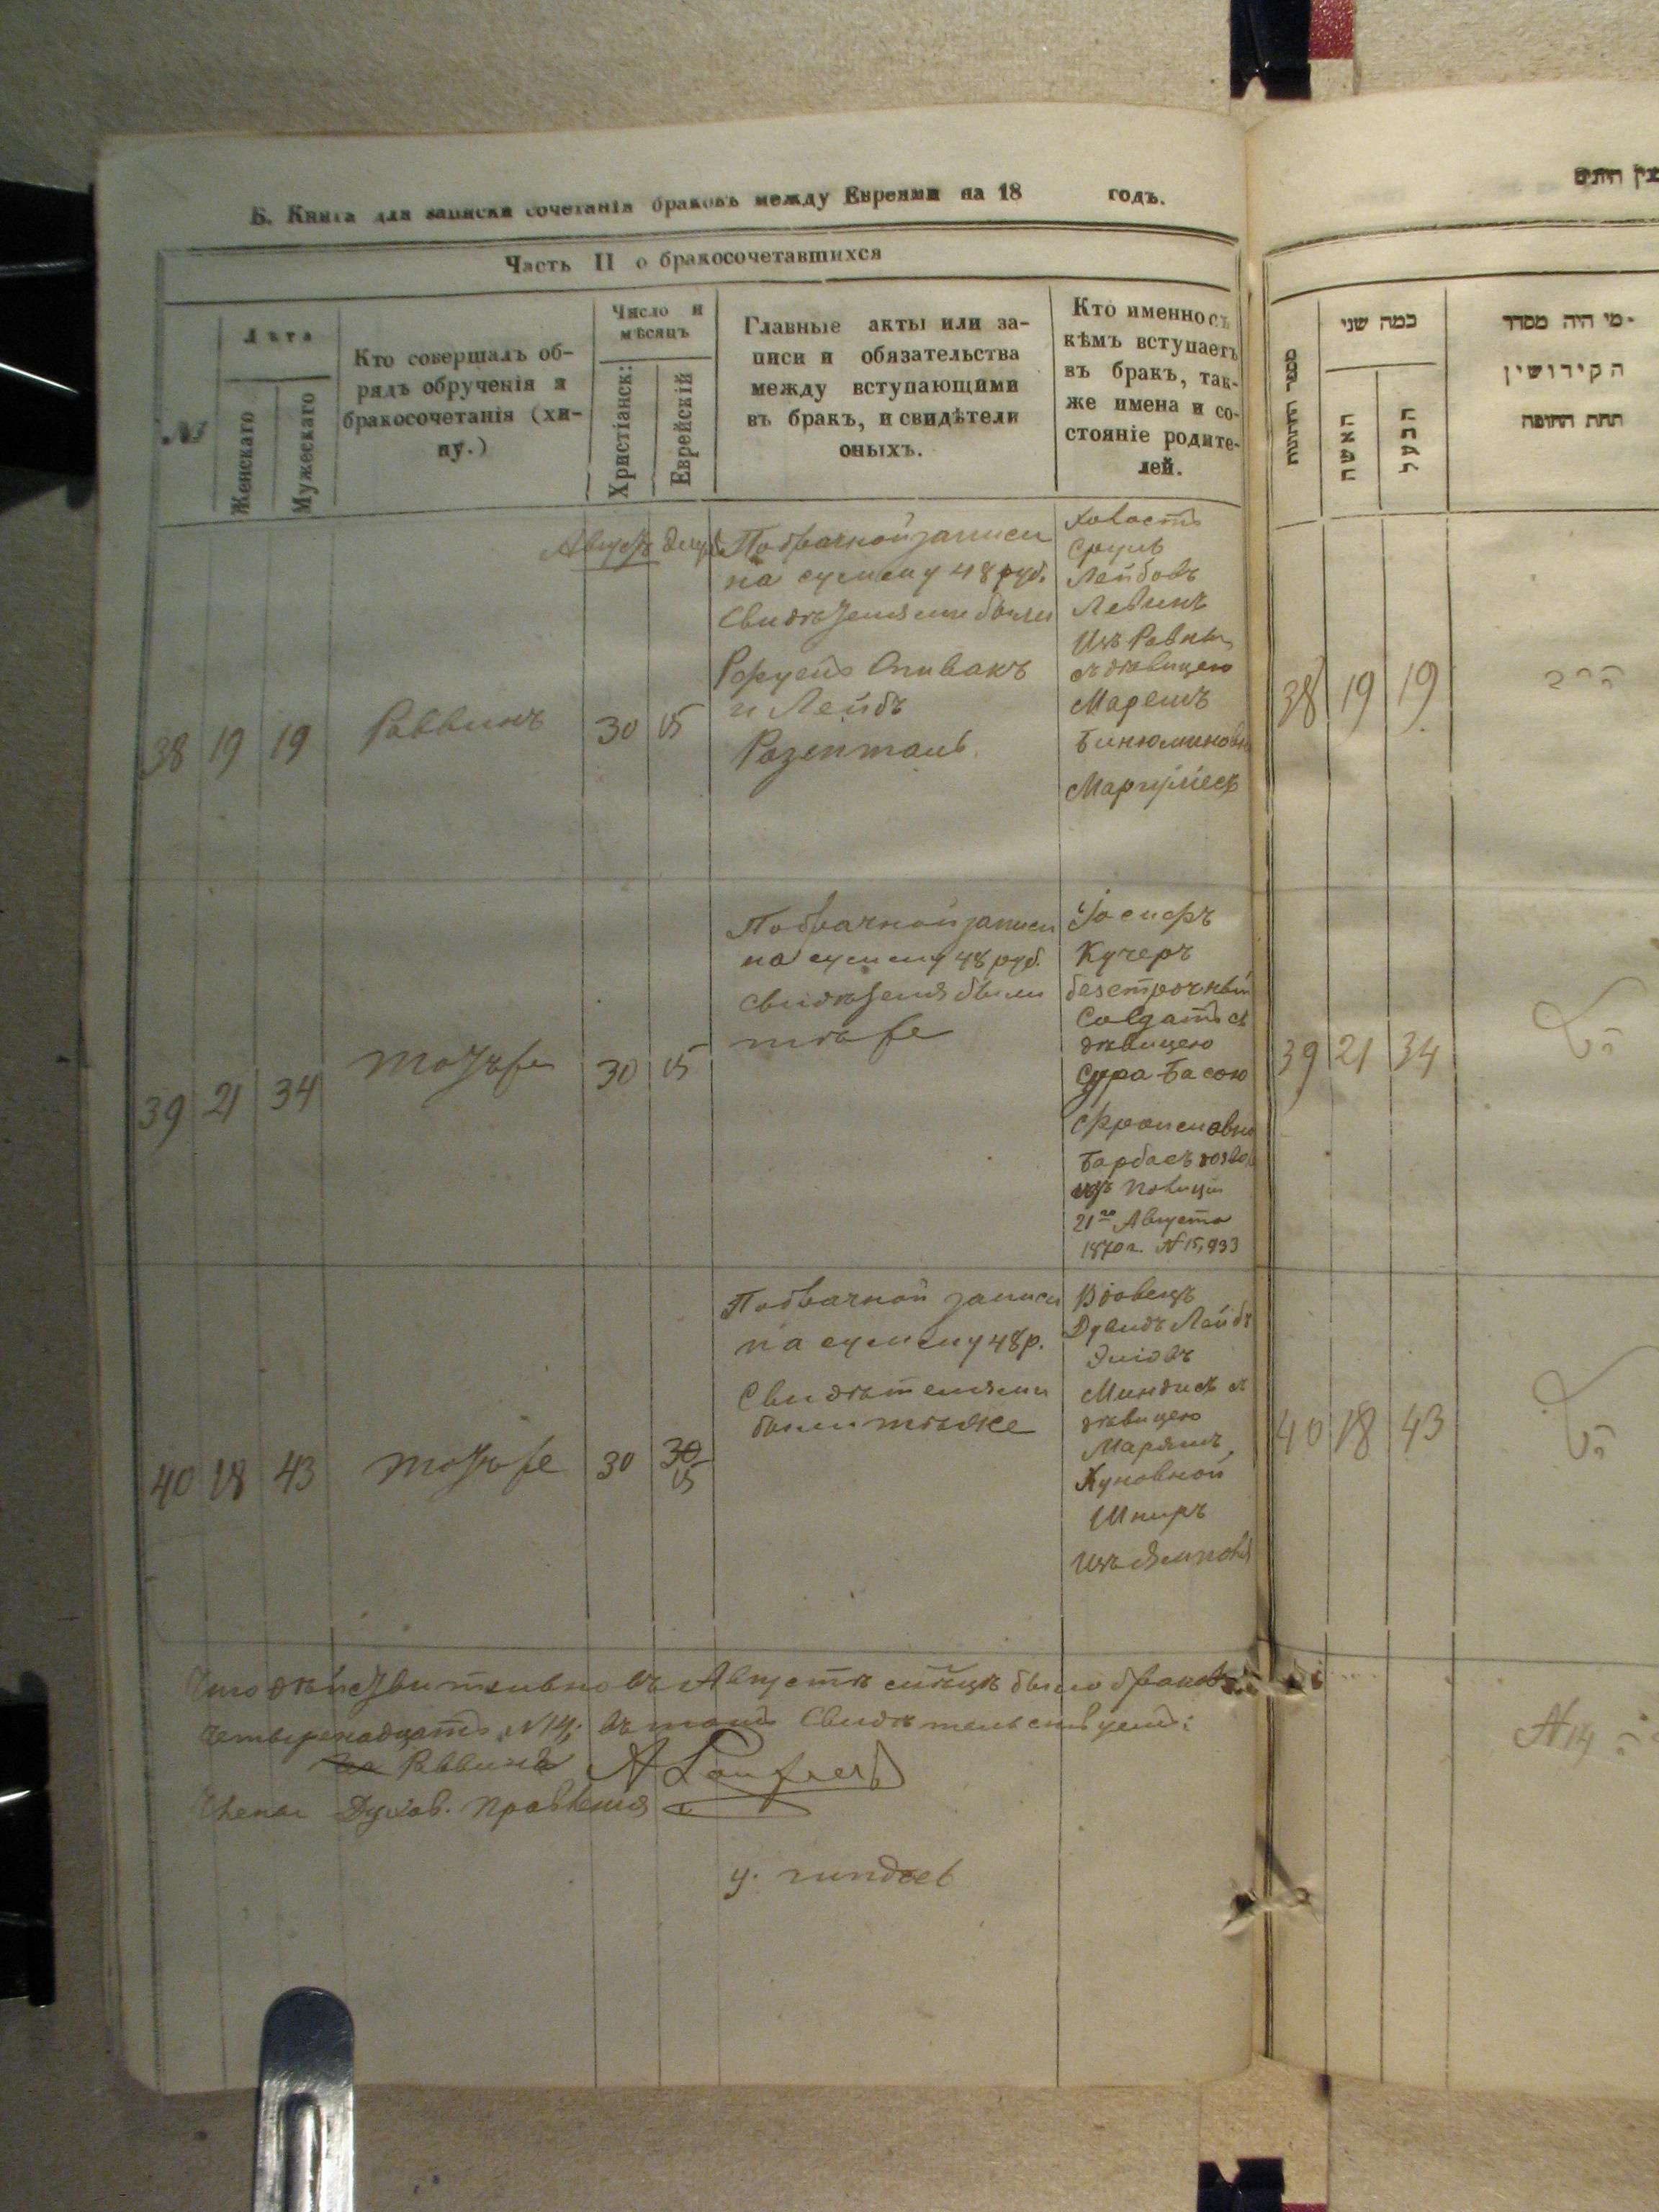 Б. Книга для записки сочетанія браковъ между Евреями на 18 годъ.
Часть II о бракосочетавшихся
№
Лѣта
Женскаго
Мужескаго
Кто совершалъ об-
рядъ обрученія и
бракосочетанія (хи-
пу.)
Число и
мѣсяцъ
Христіанск:
Еврейскій
Главные акты или за-
писи и обязательства
между вступающими
въ бракъ, и свидѣтели
оныхъ.
Кто именно съ
кѣмъ вступаетъ
въ бракъ, так-
же имена и со-
стояніе родите-
лей.
38
19
19
Раввинъ
30
15
По брачной записи
на сумму 48 руб.
Свидѣтелями были
Спивакъ
и Лейбъ
Розенталь
Холостъ
Сруль
Лейбовъ
Левинъ
Изъ Ровны
съ дѣвицею
Маремъ
Бинюминовн
Маргулiесъ
39
21
34
тотъже
30
15
По брачной записи
на сумму 48 руб.
Свидѣтеля были
тѣже
Іосифъ
Кучеръ
безсрочный
Солдатъ съ
дѣвицею
Сура-Басою
Барбасъ
изъ Полиціи
21го Августа
1870 г. № 15,933
40
18
43
тотъже
30
30
15
По брачной записи
на сумму 48 р.
Свидѣтелями
были тѣже
Вдовецъ
Дувидъ Лейбъ
Эліовъ
Миндисъ съ
дѣвицею
Марямъ
Хуновной
Шниръ
Изъ Ямполя
Что дѣйствительно въ Августѣ мѣсяцѣ было браковъ
четырнадцать, №14; въ томъ Свидѣтельствуемъ:
Раввинъ
Членъ Духов. Правленія
מספר החתונות
כמה שני
האשה
הבעל
מי היה מסדר
הקידושין
תחת החופה
38
19
19
הרב
39
21
34
הנ"ל
40
18
43
הנ"ל
№14